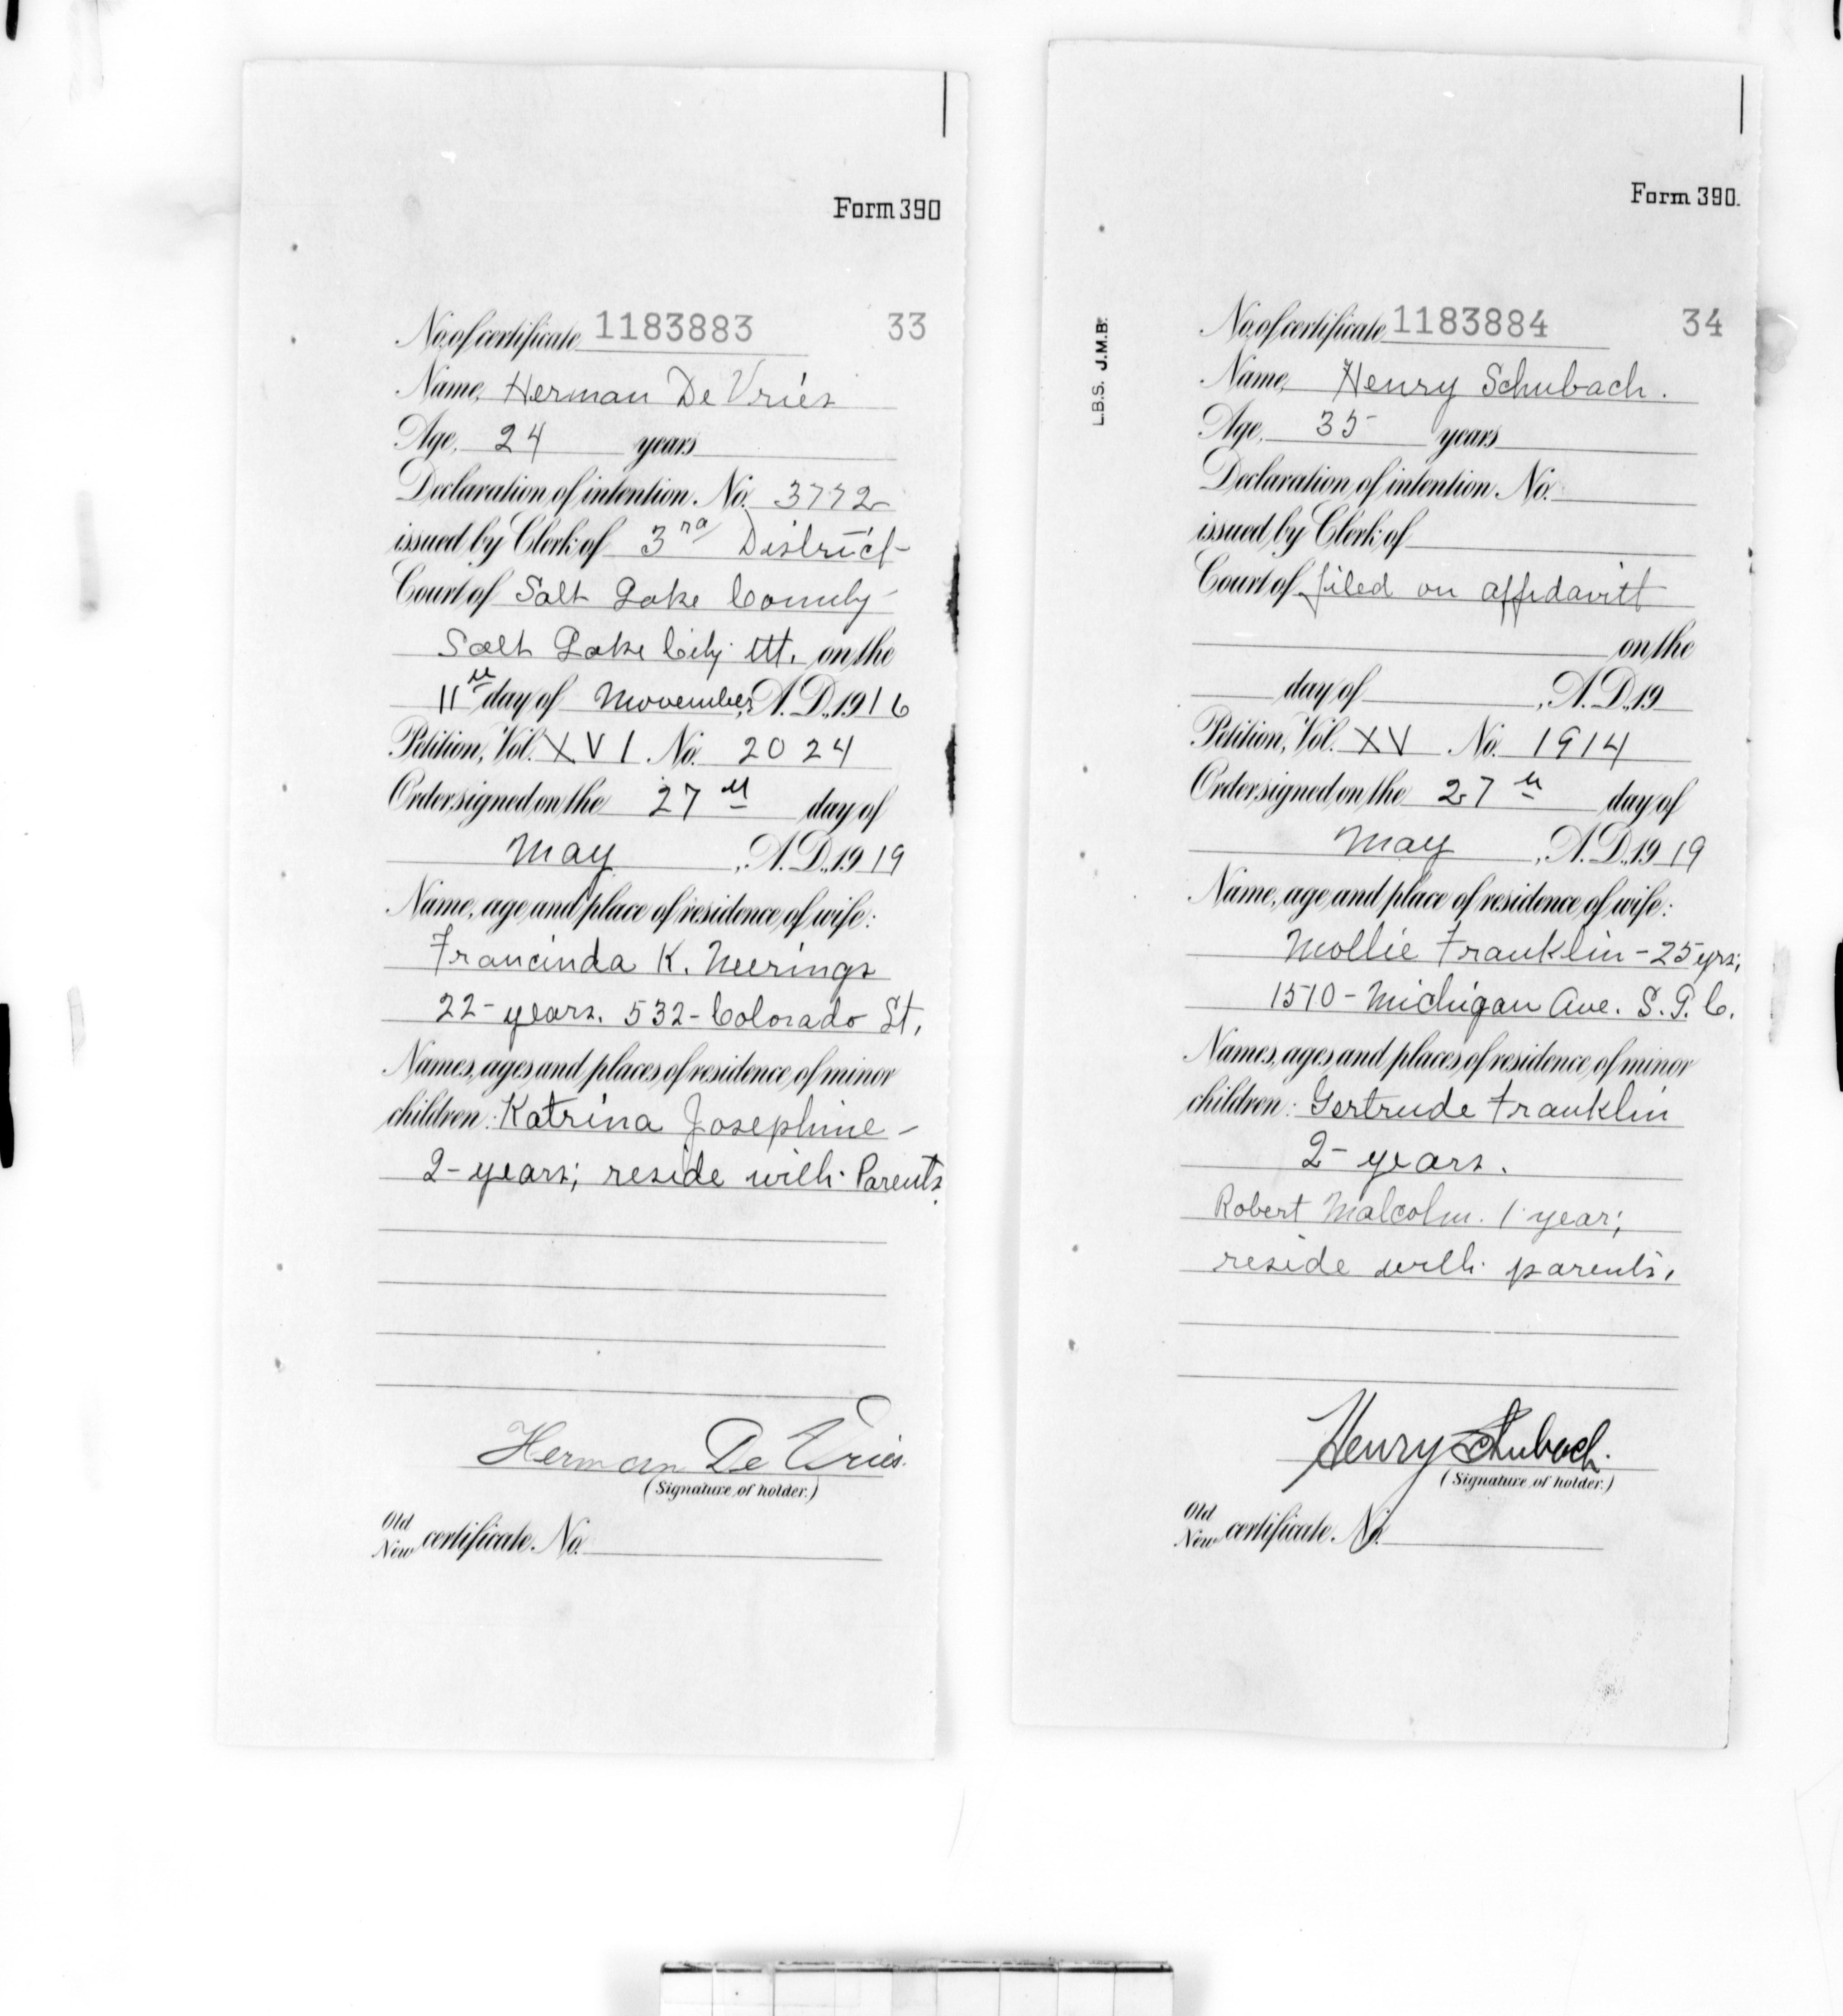 Form 390
No. of certificate 1183883 33
Name, Herman De Vries
Age, 24 years
Declaration of intention. No. 3772
issued by Clerk of 3rd District
Court of Salt Lake County
Salt Lake City Ut. on the
11th day of November, A.D., 1916
Petition, Vol. XVI No. 2024
Order signed on the 27th day of
May, A.D., 1919
Name, age and place of residence of wife:
Francinda K. Neerings
22-years. 532-Colorado St.
Names, ages and places of residence of minor
children: Katrina Josephine -
2-years; reside with Parents.
Herman De Vries.
(Signature of holder.)
Old
New certificate. No.
Form 390.
L.B.S. J.M.B.
No. of certificate 1183884 34
Name, Henry Schubach.
Age, 35 years
Declaration of intention. No.
issued by Clerk of
Court of filed on affidavitt
on the
day of , A.D., 19
Petition, Vol. XV No. 1914
Order signed on the 27th day of
May, A.D., 1919
Name, age and place of residence of wife:
Mollie Franklin - 25 yrs;
1510 - Michigan Ave. S. L. C.
Names, ages and places of residence of minor
children: Gertrude Franklin
2-years.
Robert Malcolm. 1 year;
reside with parents.
Henry Schubach.
(Signature of holder.)
Old
New certificate. No.